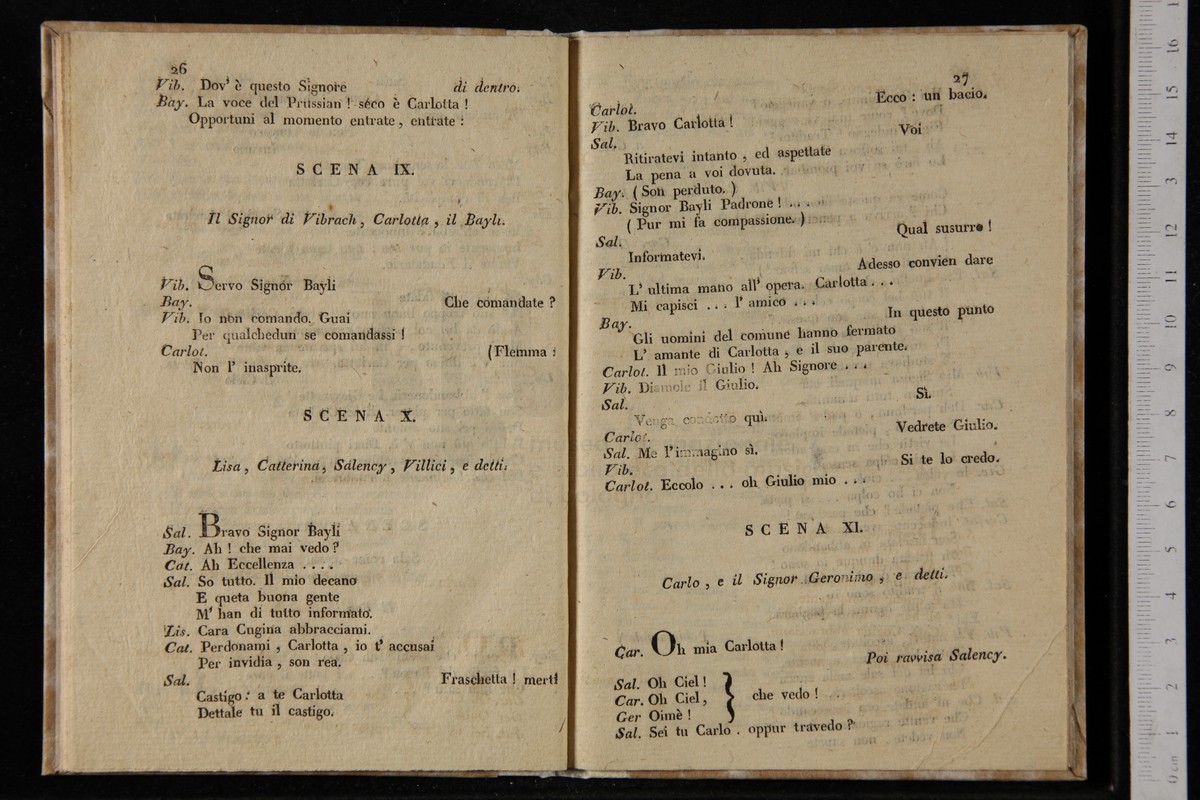 26
Vib. Dov' è questo Signore di dentro.
Bay. La voce del Prussian ! séco è Carlotta !
Opportuni al momento entrate, entrate :
SCENA IX.
Il Signor di Vibrach, Carlotta, il Bayli.
Vib. Servo Signor Bayli
Bay. Che comandate ?
Vib. Io non comando. Guai
Per qualchedun se comandassi !
Carlot. (Flemma :
Non l' inasprite.
SCENA X.
Lisa, Catterina, Salency, Villici, e detti.
Sal. Bravo Signor Bayli
Bay. Ah ! che mai vedo ?
Cat. Ah Eccellenza ....
Sal. So tutto. Il mio decano
E queta buona gente
M' han di tutto informato.
Lis. Cara Cugina abbracciami.
Cat. Perdonami, Carlotta, io t' accusai
Per invidia, son rea.
Sal. Fraschetta ! merti
Castigo: a te Carlotta
Dettale tu il castigo.
27
Carlot. Ecco : un bacio.
Vib. Bravo Carlotta !
Sal. Voi
Ritiratevi intanto, ed aspettate
La pena a voi dovuta.
Bay. (Son perduto.)
Vib. Signor Bayli Padrone ! ...
(Pur mi fa compassione.)
Sal. Qual susurro !
Informatevi.
Vib. Adesso convien dare
L' ultima mano all' opera. Carlotta ...
Mi capisci ... l' amico ...
Bay. In questo punto
Gli uomini del comune hanno fermato
L' amante di Carlotta, e il suo parente.
Carlot. Il mio Giulio ! Ah Signore ...
Vib. Diamole il Giulio.
Sal. Sì.
Venga condotto quì.
Carlot. Vedrete Giulio.
Sal. Me l'immagino sì.
Vib. Si te lo credo.
Carlot. Eccolo ... oh Giulio mio ...
SCENA XI.
Carlo, e il Signor Geronimo, e detti.
Car. Oh mia Carlotta !
Poi ravvisa Salency.
Sal. Oh Ciel !
Car. Oh Ciel, } che vedo !
Ger Oimè !
Sal. Sei tu Carlo . oppur travedo ?